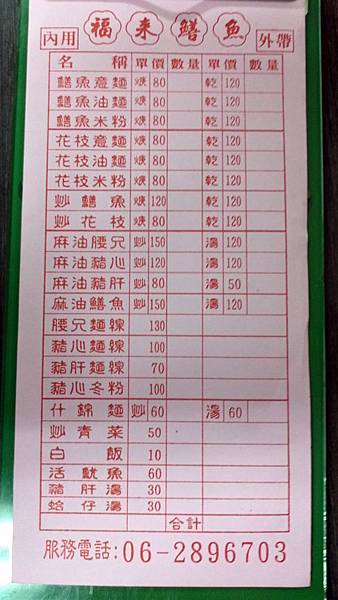 內用 福來鱔魚 外帶
名稱 單價 數量 單價 數量
鱔魚意麵 焿 80 乾 120
鱔魚油麵 焿 80 乾 120
鱔魚米粉 焿 80 乾 120
花枝意麵 焿 80 乾 120
花枝油麵 焿 80 乾 120
花枝米粉 焿 80 乾 120
炒鱔魚 焿 120 乾 120
炒花枝 焿 80 乾 120
麻油腰只 炒 150 湯 120
麻油豬心 炒 120 湯 120
麻油豬肝 炒 80 湯 50
麻油鱔魚 炒 150 湯 120
腰只麵線 130
豬心麵線 100
豬肝麵線 70
豬心冬粉 100
什錦麵 炒 60 湯 60
炒青菜 50
白飯 10
活魷魚 60
豬肝湯 30
蛤仔湯 30
合計
服務電話:06-2896703